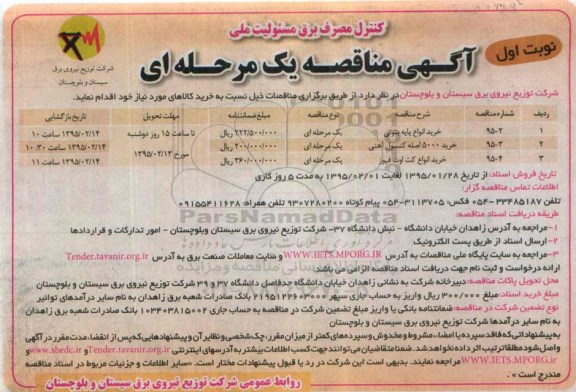 کنترل مصرف برق مسئولیت ملی
نوبت اول
آگهی مناقصه یک مرحله ای
شرکت توزیع نیروی برق
سیستان و بلوچستان
شرکت توزیع نیروی برق سیستان و بلوچستان در نظر دارد از طریق برگزاری مناقصات ذیل نسبت به خرید کالاهای مورد نیاز خود اقدام نماید.
ردیف شماره مناقصه شرح مناقصه نوع مناقصه مبلغ ضمانتنامه مهلت تحویل تاریخ بازگشایی
۱ ۹۵-۲ خرید انواع پایه بتونی یک مرحله ای ۲۲۲/۵۰۰/۰۰۰ ریال تا ساعت ۱۵ روز دوشنبه ۱۳۹۵/۰۲/۱۴ ساعت ۱۰
۲ ۹۵-۳ خرید ۵۰۰۰ اصله کنسول آهنی یک مرحله ای ۲۰۰/۰۰۰/۰۰۰ ریال مورخ ۱۳۹۵/۰۲/۱۳ ۱۳۹۵/۰۲/۱۴ ساعت ۱۰:۳۰
۳ ۹۵-۴ خرید انواع کت اوت فیوز یک مرحله ای ۲۶۰/۰۰۰/۰۰۰ ریال ۱۳۹۵/۰۲/۱۴ ساعت ۱۱
تاریخ فروش اسناد: از تاریخ ۱۳۹۵/۰۱/۲۸ لغایت ۱۳۹۵/۰۲/۰۱ به مدت ۵ روز کاری
اطلاعات تماس مناقصه گزار:
تلفن ۳۳۴۸۵۱۸۷-۰۵۴ فکس: ۳۱۱۳۷۰۵-۰۵۴ پیام کوتاه ۹۳۰۷۲۸۰۲۰۰ تلفن همراه: ۰۹۱۵۵۴۱۱۶۲۸
طریقه دریافت اسناد مناقصه:
۱-مراجعه به آدرس زاهدان خیابان دانشگاه - نبش دانشگاه ۳۷- شرکت توزیع نیروی برق سیستان وبلوچستان - امور تدارکات و قراردادها
۲-ارسال اسناد از طریق پست الکترونیک
۳-مراجعه به سایت پایگاه ملی مناقصات به آدرس WWW.IETS.MPORG.IR و سایت معاملات صنعت برق به آدرس Tender.tavanir.org.ir
ارائه درخواست و ثبت نام جهت دریافت اسناد مناقصه الزامی می باشد
محل تحویل پاکات مناقصه: دبیرخانه شرکت به نشانی زاهدان خیابان دانشگاه حدفاصل دانشگاه ۳۷ و ۳۹ شرکت توزیع نیروی برق سیستان و بلوچستان
مبلغ خرید اسناد: مبلغ ۳۰۰/۰۰۰ ریال واریز به حساب جاری سپهر ۲۱۹۵۱۱۲۶۰۳۰۰۰ بانک صادرات شعبه برق زاهدان به نام سایر درآمدهای توانیر
نوع تضمین شرکت در مناقصه: ضمانتنامه بانکی یا واریز مبلغ تضمین شرکت در مناقصه به حساب جاری ۱۰۳۴۰۳۸۱۵۰۰۲ بانک صادرات شعبه برق زاهدان
به نام سایر درآمدها شرکت توزیع نیروی برق سیستان و بلوچستان
به پیشنهاداتی که فاقد سپرده یا امضاء، مشروط و مخدوش و سپرده های کمتر از میزان مقرر، چک شخصی و نظایر آن و پیشنهادهایی که پس از انقضاء مدت مقرر در آگهی
واصل شود مطلقا ترتیب اثر داده نخواهد شد. ضمنا متقاضیان می توانند جهت کسب اطلاعات بیشتر به آدرسهای اینترنتی Tender.tavanir.org.ir و www.sbedc.ir و
WWW.IETS.MPORG.IR مراجعه نمایند. بدیهی است این شرکت در رد یا قبول پیشنهادات مختار است. - سایر اطلاعات و جزئیات مربوط در اسناد مناقصه
مندرج است.
روابط عمومی شرکت توزیع نیروی برق سیستان و بلوچستان
ParsNamadData